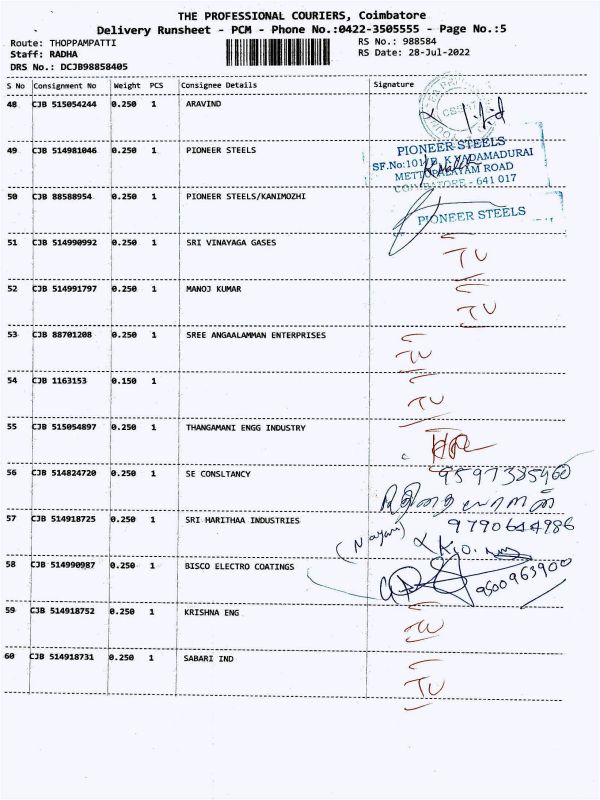 THE PROFESSIONAL COURIERS, Coimbatore
Delivery Runsheet - PCM - Phone No.:0422-3505555 - Page No.:5
Route: THOPPAMPATTI RS No.: 988584
Staff: RADHA RS Date: 28-Jul-2022
DRS No.: DCJB98858405
S No Consignment No Weight PCS Consignee Details Signature
48 CJB 515054244 0.250 1 ARAVIND
49 CJB 514981046 0.250 1 PIONEER STEELS
PIONEER STEELS
SF.No:101/B, K.VADAMADURAI
METTUPALAYAM ROAD
COIMBATORE - 641 017
50 CJB 88588954 0.250 1 PIONEER STEELS/KANIMOZHI
PIONEER STEELS
51 CJB 514990992 0.250 1 SRI VINAYAGA GASES
TU
52 CJB 514991797 0.250 1 MANOJ KUMAR
TU
53 CJB 88701208 0.250 1 SREE ANGAALAMMAN ENTERPRISES
TU
54 CJB 1163153 0.150 1
TU
55 CJB 515054897 0.250 1 THANGAMANI ENGG INDUSTRY
56 CJB 514824720 0.250 1 SE CONSLTANCY
9597385460
57 CJB 514918725 0.250 1 SRI HARITHAA INDUSTRIES
9790644986
58 CJB 514990987 0.250 1 BISCO ELECTRO COATINGS
9500963900
59 CJB 514918752 0.250 1 KRISHNA ENG
TU
60 CJB 514918731 0.250 1 SABARI IND
TU